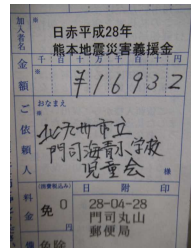 加入者名
日赤平成28年
熊本地震災害義援金
金額
千 百 十 万 千 百 十 円
¥16932
ご依頼人
おなまえ
北九州市立
門司海青小学校
児童会
様
料金
(消費税込み)
免 0
円
日 附 印
28-04-28
門司丸山
郵便局
免除